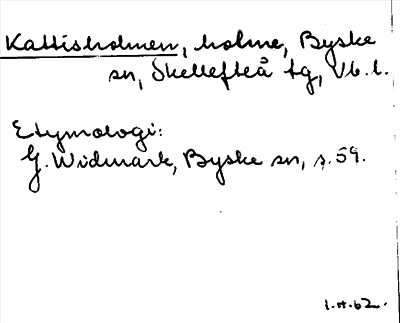 Kattisholmen, holme, Byske
sn, Skellefteå tg, Vb. l.
Etymologi:
G. Widmark, Byske sn, s. 59.